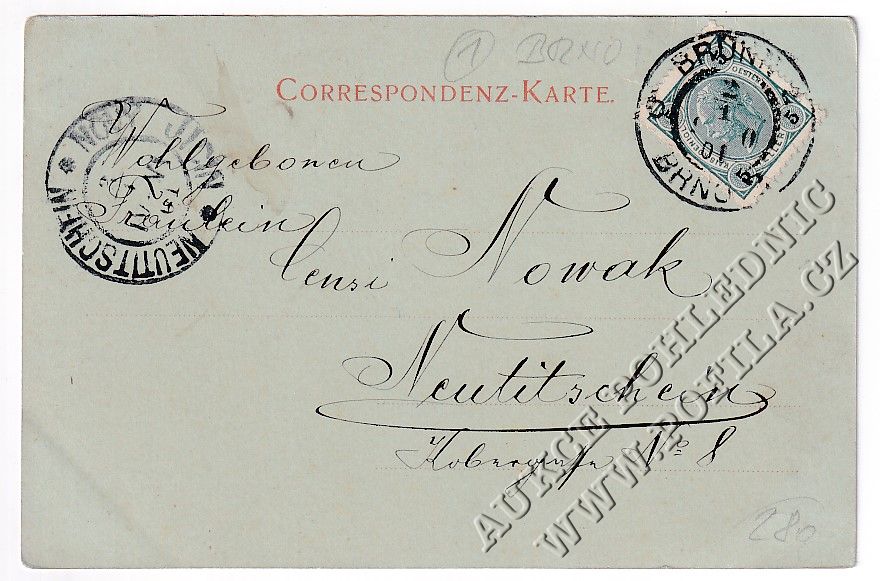 ① BRNO
CORRESPONDENZ-KARTE.
BRÜNN
BRNO
5 5
NOVÝ JIČÍN
NEUTITSCHEIN
Wohlgeboren
Fräulein
Censi Nowak
Neutitschein
No 8
280
AUKCE POHLEDNIC
WWW.POFILA.CZ